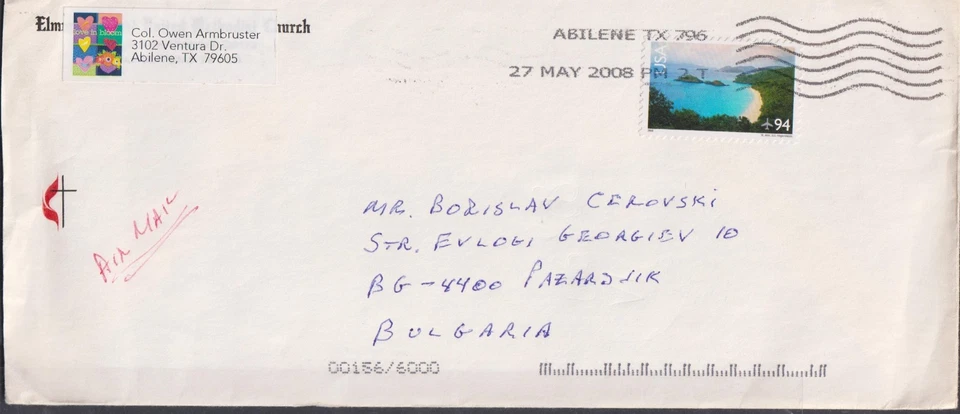 Church
love in bloom
Col. Owen Armbruster
3102 Ventura Dr.
Abilene, TX 79605
ABILENE TX 796
27 MAY 2008 PM
USA
94
AIR MAIL
MR. BORISLAV CEROVSKI
STR. EVLOGI GEORGIEV 10
BG-4400 PAZARDJIK
BULGARIA
00156/6000